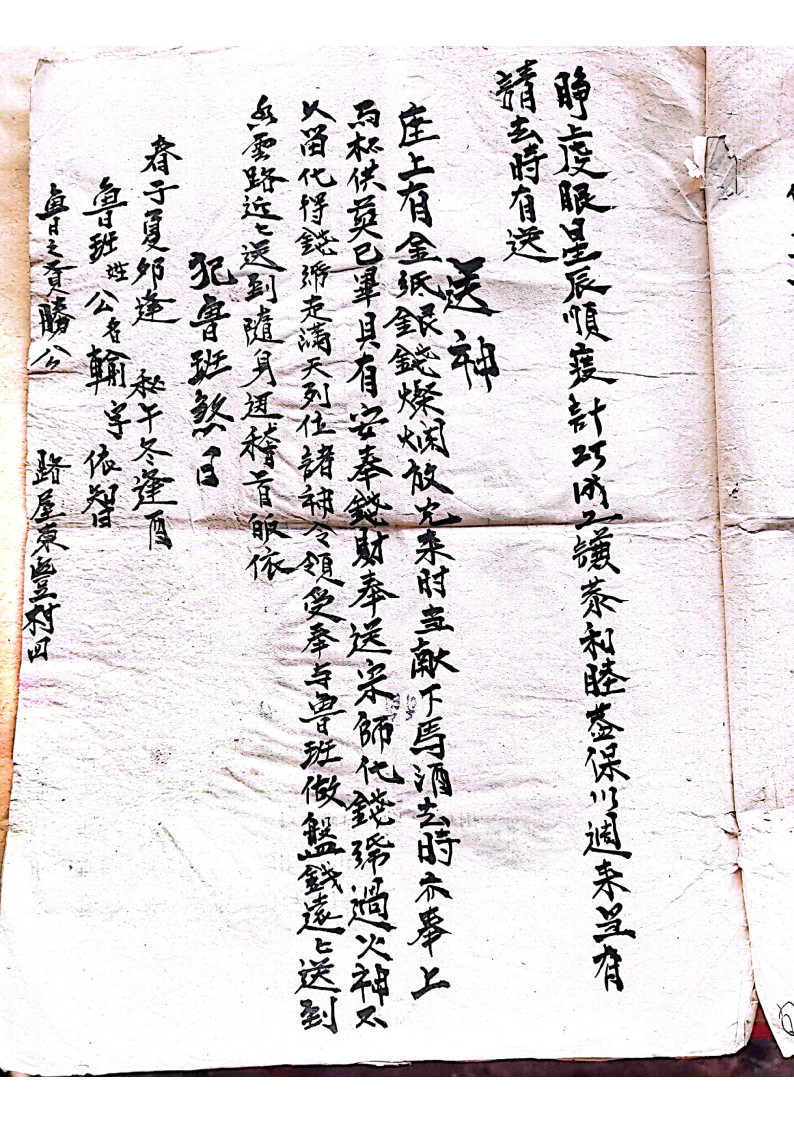 睜上度眼星辰順度計巧成工謙恭和睦益保川週来豈有
請去時有送
送神
座上有金紙銀錢燦爛放光来时当献下馬酒去時亦奉上
馬杯供奠已畢具有安奉錢財奉送宗師化錢帋過火神不
久留化得錢帋走滿天列位諸神今領受奉与魯班做盤錢遠〻送到
雲路近〻送到隨身週稽首皈依
犯魯班煞日
春子夏卯逢 秋午冬逢酉
魯班姓公名輸字依智
魯之賢勝公 路屋東豐村